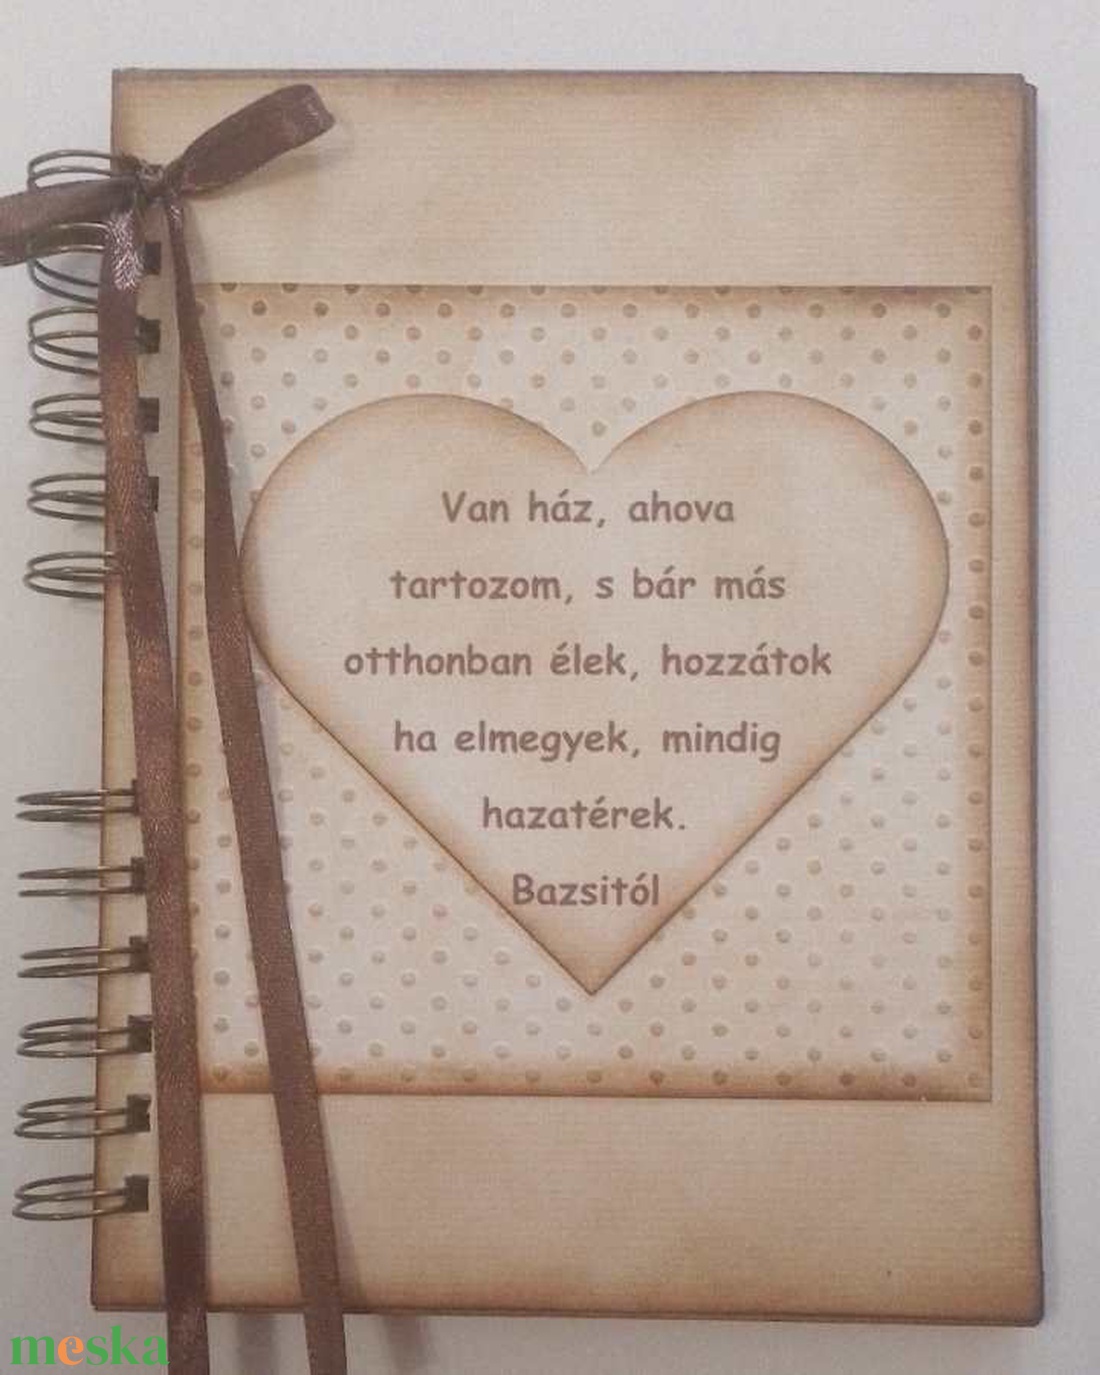 Van ház, ahova
tartozom, s bár más
otthonban élek, hozzátok
ha elmegyek, mindig
hazatérek.
Bazsitól
meska